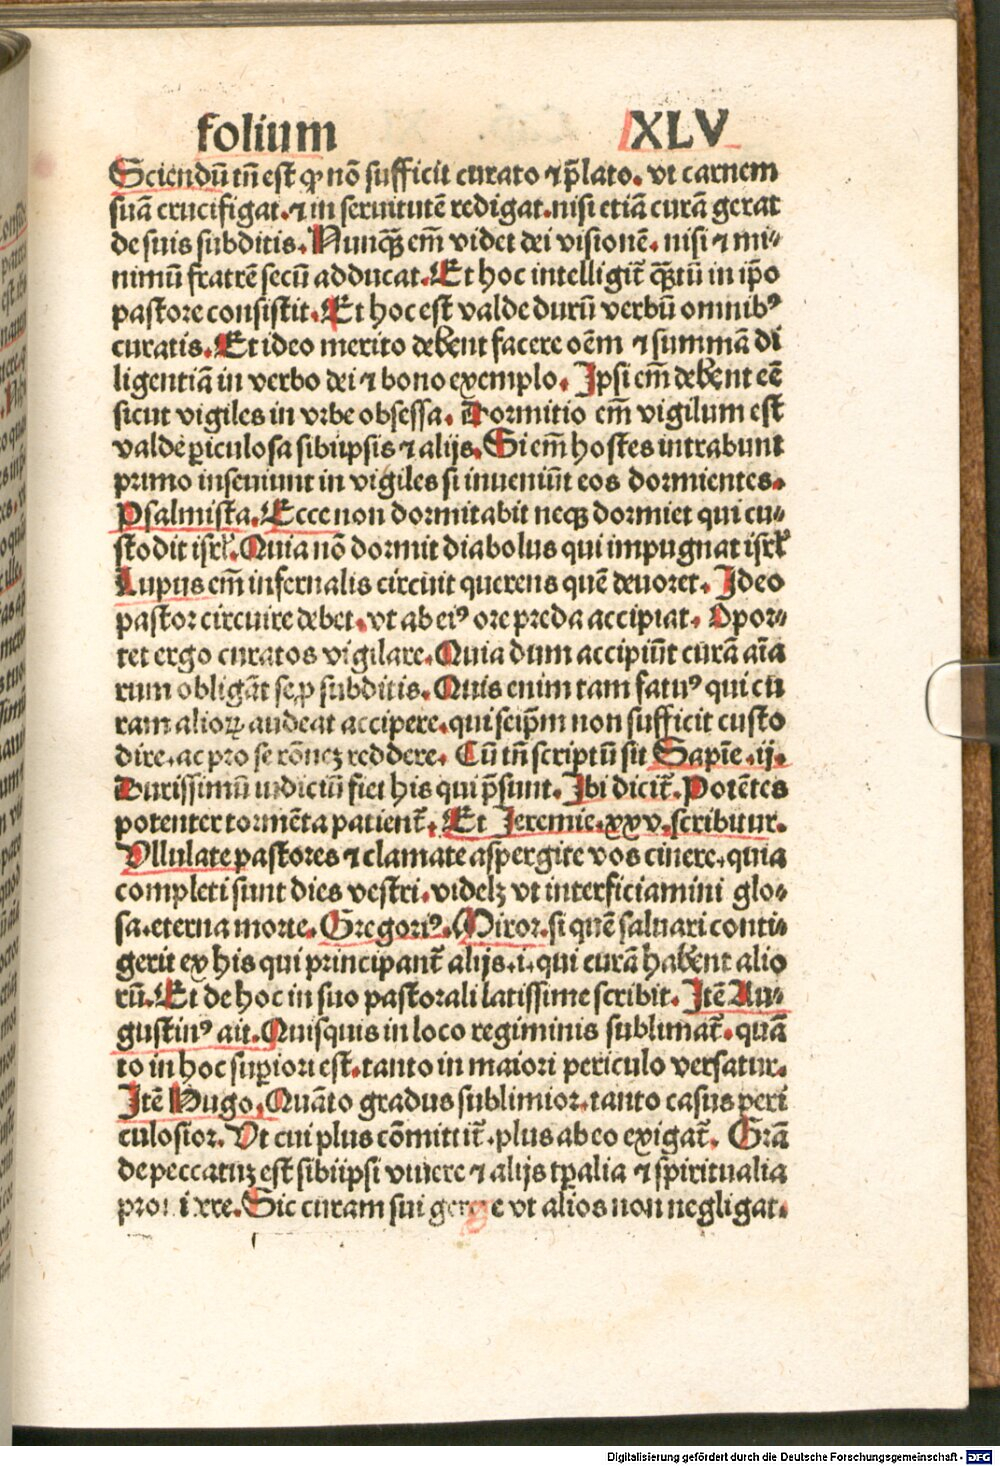 folium XLV
Sciendū tñ est ꝙ nō sufficit curato ⁊ p̄lato. vt carnem
suā crucifigat. ⁊ in seruitutē redigat. nisi etiā curā gerat
de suis subditis. Nunqȝ em̄ videt dei visionē. nisi ⁊ mi⸗
nimū fratrē secū adducat. Et hoc intelligit̄ qȝtū in ip̄o
pastore consistit. Et hoc est valde durū verbū omnibꝰ
curatis. Et ideo merito debent facere oēm ⁊ summā di
ligentiā in verbo dei ⁊ bono exemplo. Ipsi em̄ debent eē
sicut vigiles in vrbe obsessa. Dormitio em̄ vigilum est
valde ꝑiculosa sibiipsis ⁊ alijs. Si em̄ hostes intrabunt
primo inseuiunt in vigiles si inueniūt eos dormientes.
Psalmista. Ecce non dormitabit neqȝ dormiet qui cu⸗
stodit isrł. Quia nō dormit diabolus qui impugnat isrł
Lupus em̄ infernalis circuit querens quē deuoret. Ideo
pastor circuire debet. vt ab eiꝰ ore preda accipiat. Opor⸗
tet ergo curatos vigilare. Quia dum accipiūt curā aīa
rum obligāt se ꝓ subditis. Quis enim tam fatuꝰ qui cu
ram alioꝝ audeat accipere. qui seip̄m non sufficit custo
dire. ac pro se rōneȝ reddere. Cū tñ scriptū sit Sapīe. ij.
Durissimū iudiciū fiet his qui p̄sunt. Ibi dicit̄. Potētes
potenter tormēta patient̄. Et Jeremie. xxv. scribitur.
Vllulate pastores ⁊ clamate aspergite vos cinere. quia
completi sunt dies vestri. videlȝ vt interficiamini glo⸗
sa. eterna morte. Gregoriꝰ. Miror. si quē saluari conti⸗
gerit ex his qui principant̄ alijs. i. qui curā habent alio
rū. Et de hoc in suo pastorali latissime scribit. Itē Au⸗
gustinꝰ ait. Quisquis in loco regiminis sublimat̄. quā
to in hoc suꝑiori est. tanto in maiori periculo versatur.
Itē Hugo. Quāto gradus sublimior. tanto casus peri
culosior. Vt cui plus cōmittit̄. plus ab eo exigat̄. Grā
de peccatuȝ est sibiipsi viuere ⁊ alijs tꝑalia ⁊ spiritualia
Sic curam sui vt alios non negligat.
Digitalisierung gefördert durch die Deutsche Forschungsgemeinschaft - DFG